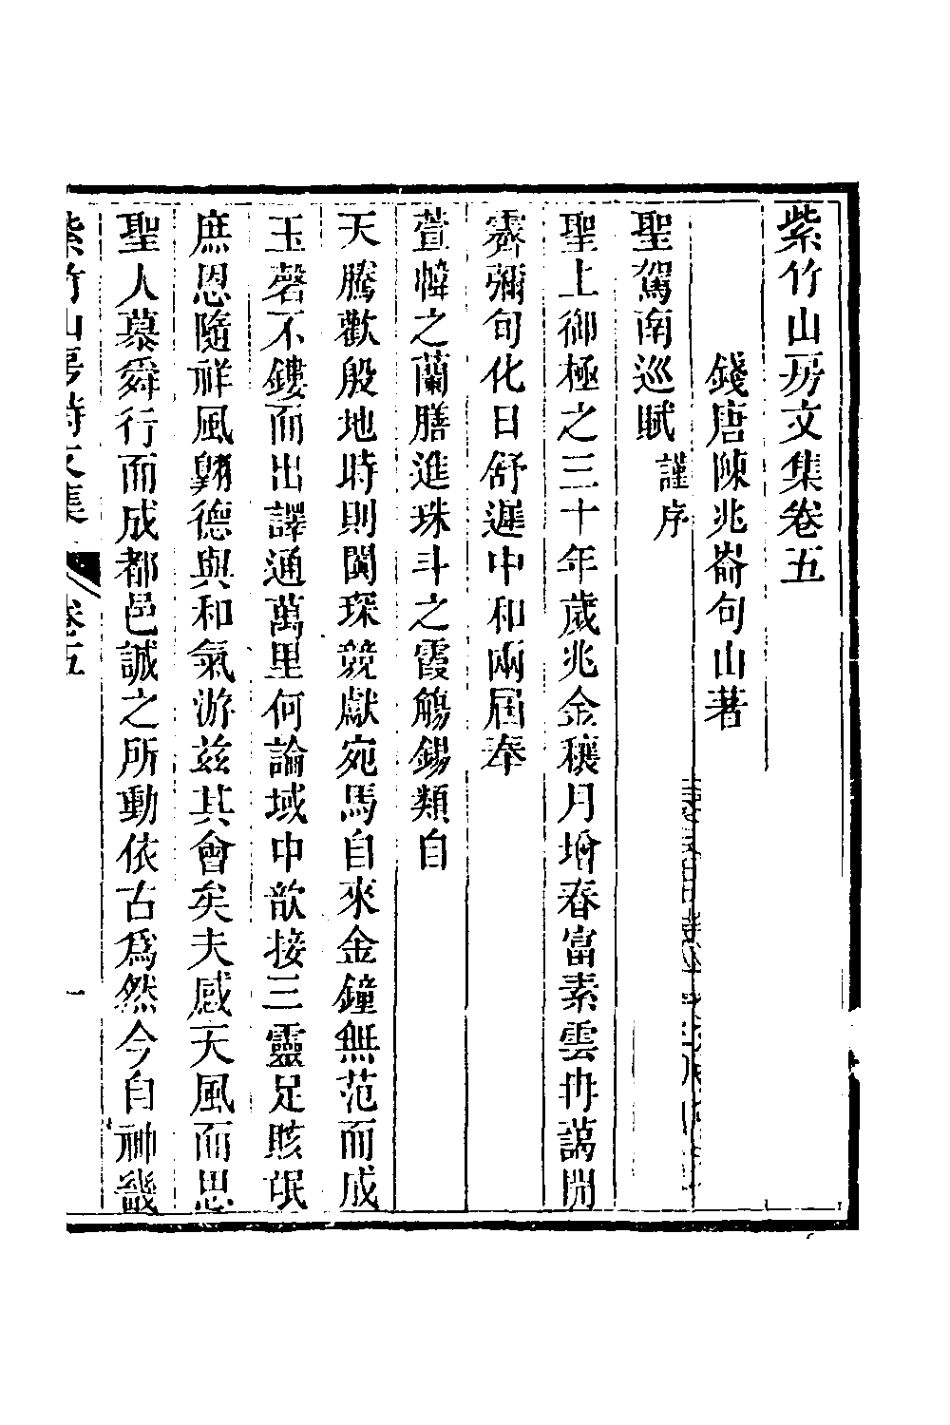 紫竹山房文集卷五
錢唐陳兆崙句山著
聖駕南巡賦謹序
聖上御極之三十年歲兆金穰月增春富素雲冉藹開
霽彌旬化日舒遲中和兩屆奉
萱幃之蘭膳進珠斗之霞觴錫類自
天騰歡殷地時則閩琛競獻宛馬自來金鐘無范而成
玉磬不鏤而出譯通萬里何論域中歆接三靈足賅氓
庶恩隨祥風翺德與和氣游兹其會矣夫感天風而思
聖人慕舜行而成都邑誠之所動依古爲然今自神畿
紫竹山房詩文集 卷五 一